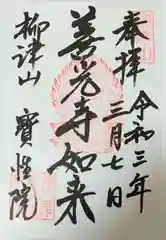 奉拝
令和三年
三月七日
善光寺如来
柳津山
寳性院